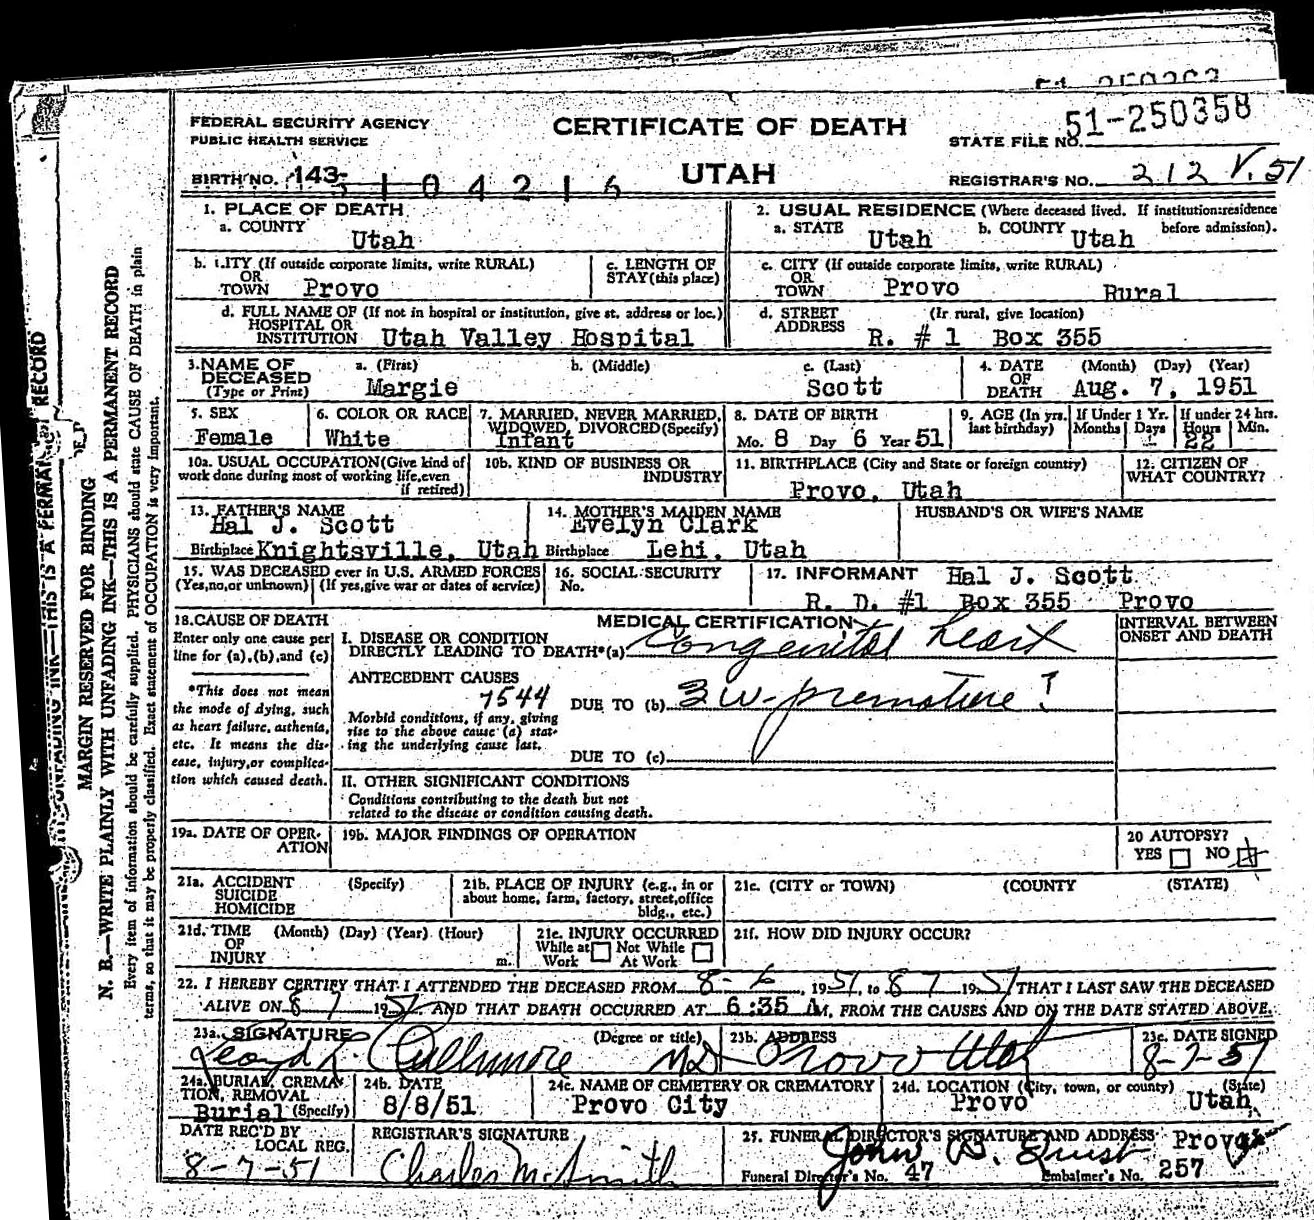 51-250363
FEDERAL SECURITY AGENCY
PUBLIC HEALTH SERVICE
CERTIFICATE OF DEATH
STATE FILE NO. 51-250358
BIRTH NO. 143-5104216
UTAH
REGISTRAR'S NO. 212 V. 51
1. PLACE OF DEATH
a. COUNTY
Utah
2. USUAL RESIDENCE (Where deceased lived. If institution:residence before admission).
a. STATE Utah b. COUNTY Utah
b. CITY (If outside corporate limits, write RURAL)
OR
TOWN Provo
c. LENGTH OF
STAY (this place)
c. CITY (If outside corporate limits, write RURAL)
OR
TOWN Provo Rural
d. FULL NAME OF (If not in hospital or institution, give st. address or loc.)
HOSPITAL OR
INSTITUTION Utah Valley Hospital
d. STREET (If rural, give location)
ADDRESS R. # 1 Box 355
3. NAME OF DECEASED (Type or Print)
a. (First) b. (Middle) c. (Last)
Margie Scott
4. DATE OF DEATH (Month) (Day) (Year)
Aug. 7, 1951
5. SEX
Female
6. COLOR OR RACE
White
7. MARRIED, NEVER MARRIED, WIDOWED, DIVORCED (Specify)
Infant
8. DATE OF BIRTH
Mo. 8 Day 6 Year 51
9. AGE (In yrs. last birthday)
If Under 1 Yr.
Months Days
If under 24 hrs.
Hours Min.
22
10a. USUAL OCCUPATION (Give kind of work done during most of working life, even if retired)
10b. KIND OF BUSINESS OR INDUSTRY
11. BIRTHPLACE (City and State or foreign country)
Provo, Utah
12. CITIZEN OF WHAT COUNTRY?
13. FATHER'S NAME
Hal J. Scott
Birthplace Knightsville, Utah
14. MOTHER'S MAIDEN NAME
Evelyn Clark
Birthplace Lehi, Utah
HUSBAND'S OR WIFE'S NAME
15. WAS DECEASED ever in U.S. ARMED FORCES
(Yes, no, or unknown) (If yes, give war or dates of service)
16. SOCIAL SECURITY
No.
17. INFORMANT Hal J. Scott
R. D. #1 Box 355 Provo
18. CAUSE OF DEATH
Enter only one cause per line for (a), (b), and (c)
*This does not mean the mode of dying, such as heart failure, asthenia, etc. It means the disease, injury, or complication which caused death.
MEDICAL CERTIFICATION
INTERVAL BETWEEN ONSET AND DEATH
I. DISEASE OR CONDITION
DIRECTLY LEADING TO DEATH*(a) Congenital heart
ANTECEDENT CAUSES
7544
DUE TO (b) 3 w-premature?
Morbid conditions, if any, giving rise to the above cause (a) stating the underlying cause last.
DUE TO (c)
II. OTHER SIGNIFICANT CONDITIONS
Conditions contributing to the death but not related to the disease or condition causing death.
19a. DATE OF OPERATION
19b. MAJOR FINDINGS OF OPERATION
20 AUTOPSY?
YES NO
21a. ACCIDENT
SUICIDE
HOMICIDE
(Specify)
21b. PLACE OF INJURY (e.g., in or about home, farm, factory, street, office bldg., etc.)
21c. (CITY or TOWN) (COUNTY) (STATE)
21d. TIME OF INJURY (Month) (Day) (Year) (Hour)
m.
21e. INJURY OCCURRED
While at Work Not While At Work
21f. HOW DID INJURY OCCUR?
22. I HEREBY CERTIFY THAT I ATTENDED THE DECEASED FROM 8-6, 1951, to 8 7 1951 THAT I LAST SAW THE DECEASED
ALIVE ON 8 7 1951 AND THAT DEATH OCCURRED AT 6:35 A M, FROM THE CAUSES AND ON THE DATE STATED ABOVE.
23a. SIGNATURE (Degree or title)
Lloyd L. Cullimore MD
23b. ADDRESS
Provo Utah
23c. DATE SIGNED
8-7-51
24a. BURIAL, CREMATION, REMOVAL
Burial (Specify)
24b. DATE
8/8/51
24c. NAME OF CEMETERY OR CREMATORY
Provo City
24d. LOCATION (City, town, or county) (State)
Provo Utah
DATE REC'D BY LOCAL REG.
8-7-51
REGISTRAR'S SIGNATURE
Charles M. Smith
25. FUNERAL DIRECTOR'S SIGNATURE AND ADDRESS Provo
John
Funeral Director's No. 47 Embalmer's No. 257
MARGIN RESERVED FOR BINDING
N. B.—WRITE PLAINLY WITH UNFADING INK—THIS IS A PERMANENT RECORD
Every item of information should be carefully supplied. PHYSICIANS should state CAUSE OF DEATH in plain
terms, so that it may be properly classified. Exact statement of OCCUPATION is very important.
UNFADING INK—THIS IS A PERMANENT RECORD